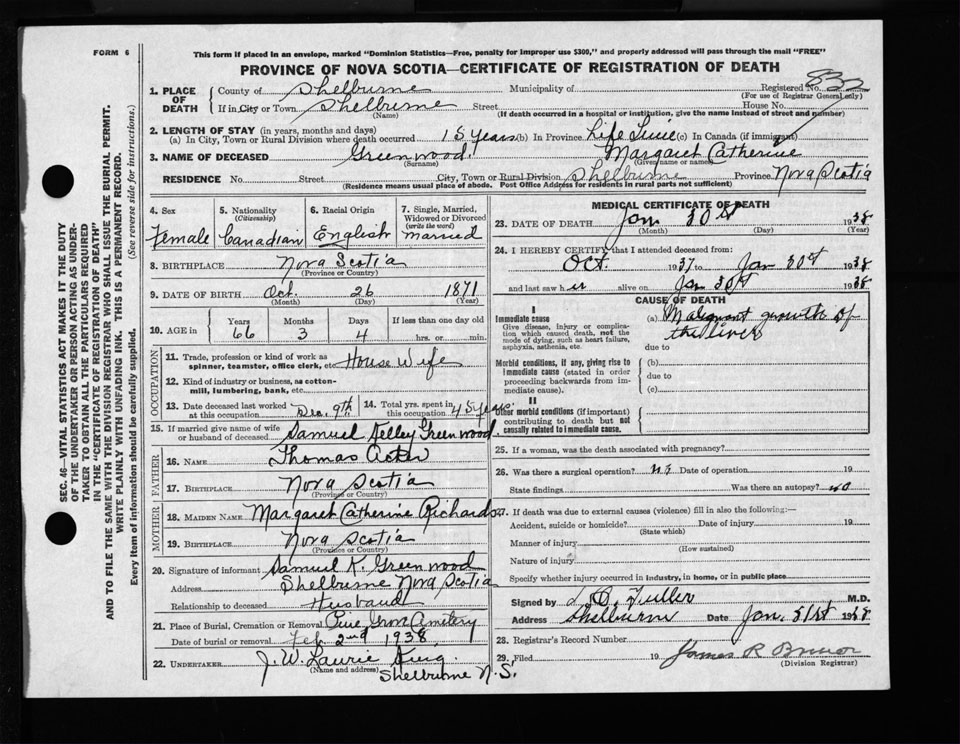 FORM 6
This form if placed in an envelope, marked "Dominion Statistics—Free, penalty for improper use $300," and properly addressed will pass through the mail "FREE"
PROVINCE OF NOVA SCOTIA—CERTIFICATE OF REGISTRATION OF DEATH
SEC. 46—VITAL STATISTICS ACT MAKES IT THE DUTY
OF THE UNDERTAKER OR PERSON ACTING AS UNDER-
TAKER TO OBTAIN ALL THE PARTICULARS REQUIRED
IN THE "CERTIFICATE OF REGISTRATION OF DEATH"
AND TO FILE THE SAME WITH THE DIVISION REGISTRAR WHO SHALL ISSUE THE BURIAL PERMIT.
WRITE PLAINLY WITH UNFADING INK. THIS IS A PERMANENT RECORD.
Every item of information should be carefully supplied. (See reverse side for instructions.)
1. PLACE OF DEATH County of Shelburne Municipality of Registered No.
(For use of Registrar General only)
If in City or Town Shelburne Street House No.
(Name) (If death occurred in a hospital or institution, give the name instead of street and number)
2. LENGTH OF STAY (in years, months and days)
(a) In City, Town or Rural Division where death occurred 15 years (b) In Province Life Time (c) In Canada (if immigrant)
3. NAME OF DECEASED Greenwood, Margaret Catherine
(Surname) (Given name or names)
RESIDENCE No. Street City, Town or Rural Division Shelburne Province Nova Scotia
(Residence means usual place of abode. Post Office Address for residents in rural parts not sufficient)
4. Sex Female
5. Nationality (Citizenship) Canadian
6. Racial Origin English
7. Single, Married, Widowed or Divorced (write the word) married
8. BIRTHPLACE Nova Scotia
(Province or Country)
9. DATE OF BIRTH Oct. 26 1871
(Month) (Day) (Year)
10. AGE in Years 66 Months 3 Days 4 If less than one day old hrs. or min.
OCCUPATION
11. Trade, profession or kind of work as spinner, teamster, office clerk, etc. House Wife
12. Kind of industry or business, as cotton-mill, lumbering, bank, etc.
13. Date deceased last worked at this occupation Dec. 9th 14. Total yrs. spent in this occupation 45 years
15. If married give name of wife or husband of deceased Samuel Kelley Greenwood
FATHER
16. NAME Thomas
17. BIRTHPLACE Nova Scotia
(Province or Country)
MOTHER
18. MAIDEN NAME Margaret Catherine Richardson
19. BIRTHPLACE Nova Scotia
(Province or Country)
20. Signature of informant Samuel K. Greenwood
Address Shelburne Nova Scotia
Relationship to deceased Husband
21. Place of Burial, Cremation or Removal Pine Grove Cemetery
Date of burial or removal Feb 2nd 1938
22. UNDERTAKER J. W. Laurie
(Name and address) Shelburne N.S.
MEDICAL CERTIFICATE OF DEATH
23. DATE OF DEATH Jan 30st 1938
(Month) (Day) (Year)
24. I HEREBY CERTIFY that I attended deceased from:
Oct. 1937 to Jan 30st 1938
and last saw her alive on Jan 30st 1938
CAUSE OF DEATH
I
Immediate cause (a) Malignant growth of
Give disease, injury or complication which caused death, not the mode of dying, such as heart failure, asphyxia, asthenia, etc. the liver
due to
Morbid conditions, if any, giving rise to immediate cause (stated in order proceeding backwards from immediate cause). (b)
due to
(c)
II
Other morbid conditions (if important) contributing to death but not causally related to immediate cause.
25. If a woman, was the death associated with pregnancy?
26. Was there a surgical operation? no Date of operation 19
State findings Was there an autopsy? no
27. If death was due to external causes (violence) fill in also the following:—
Accident, suicide or homicide? Date of injury 19
(State which)
Manner of injury
(How sustained)
Nature of injury
Specify whether injury occurred in industry, in home, or in public place
Signed by L. O. Fuller M.D.
Address Shelburne Date Jan. 31st 1938
28. Registrar's Record Number
29. Filed 19 James R
(Division Registrar)